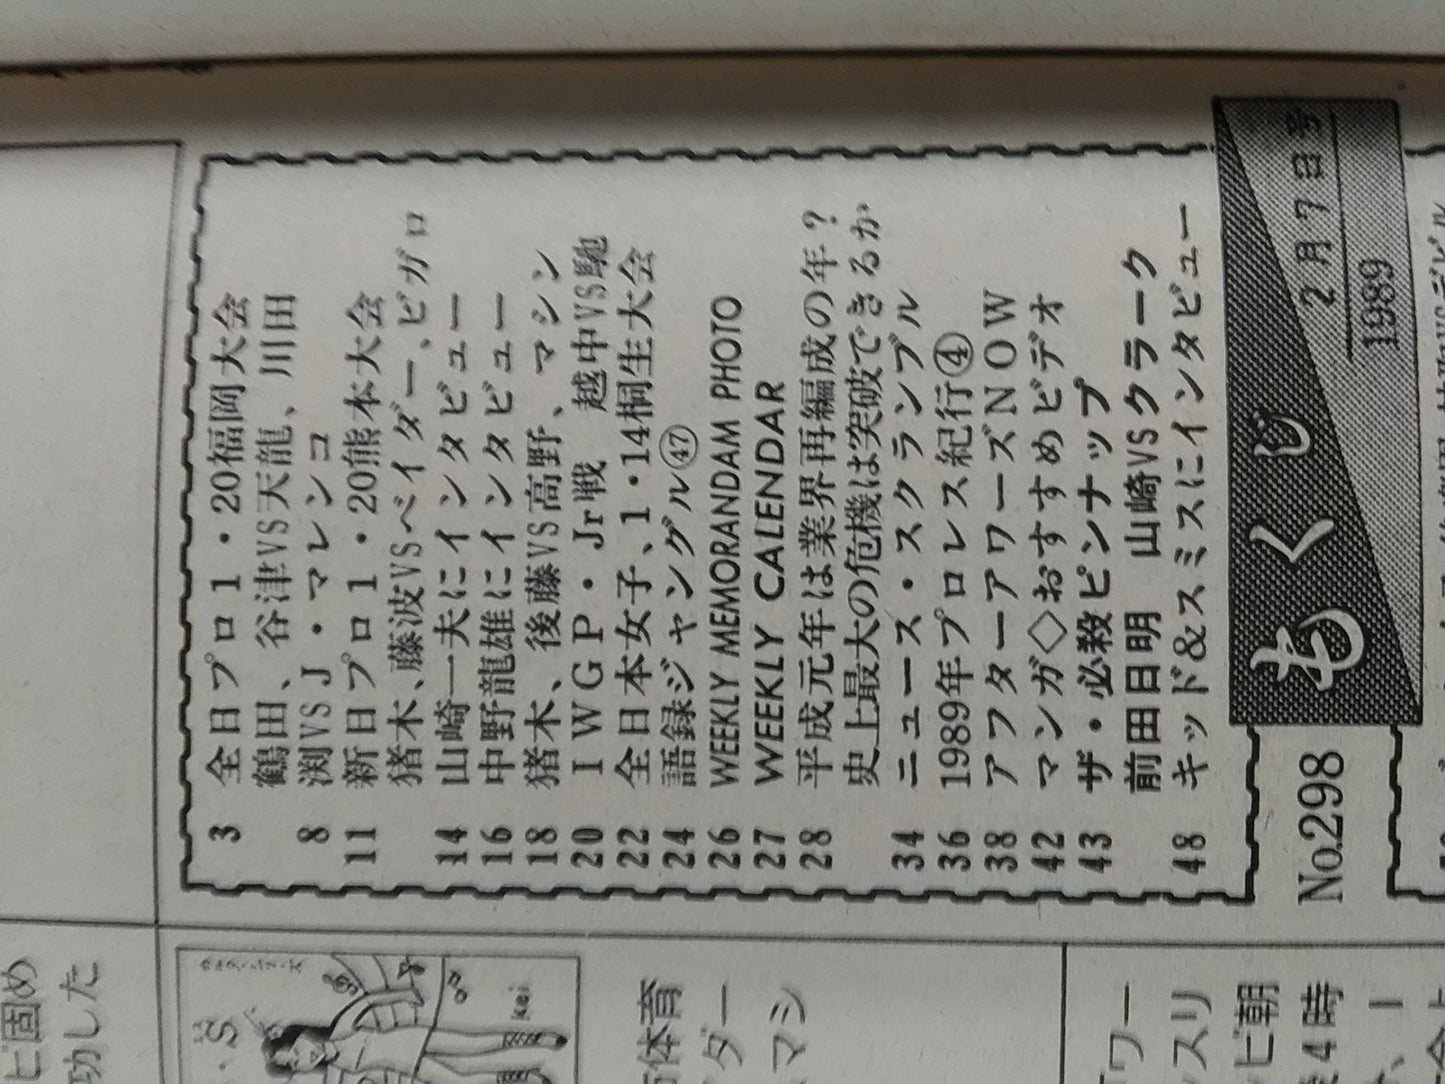 3 全日プロ1・20福岡大会
鶴田、谷津VS天龍、川田
8 渕VSJ・マレンコ
11 新日プロ1・20熊本大会
猪木、藤波VSベイダー、ビガロ
14 山崎一夫にインタビュー
16 中野龍雄にインタビュー
18 猪木、後藤VS高野、マシン
20 IWGP・Jr戦 越中VS馳
22 全日本女子、1・14桐生大会
24 語録ジャングル㊼
26 WEEKLY MEMORANDAM PHOTO
27 WEEKLY CALENDAR
28 平成元年は業界再編成の年?
史上最大の危機は突破できるか
34 ニュース・スクランブル
36 1989年プロレス紀行④
38 アフターアワーズNOW
42 マンガ◇おすすめビデオ
43 ザ・必殺ピンナップ
前田日明 山崎VSクラーク
48 キッド&スミスにインタビュー
No.298 もくじ 2月7日号
1989
ビ固め
功した
S
kei
体育
ダー
マシ
ワー
スリ
ビ朝
4時